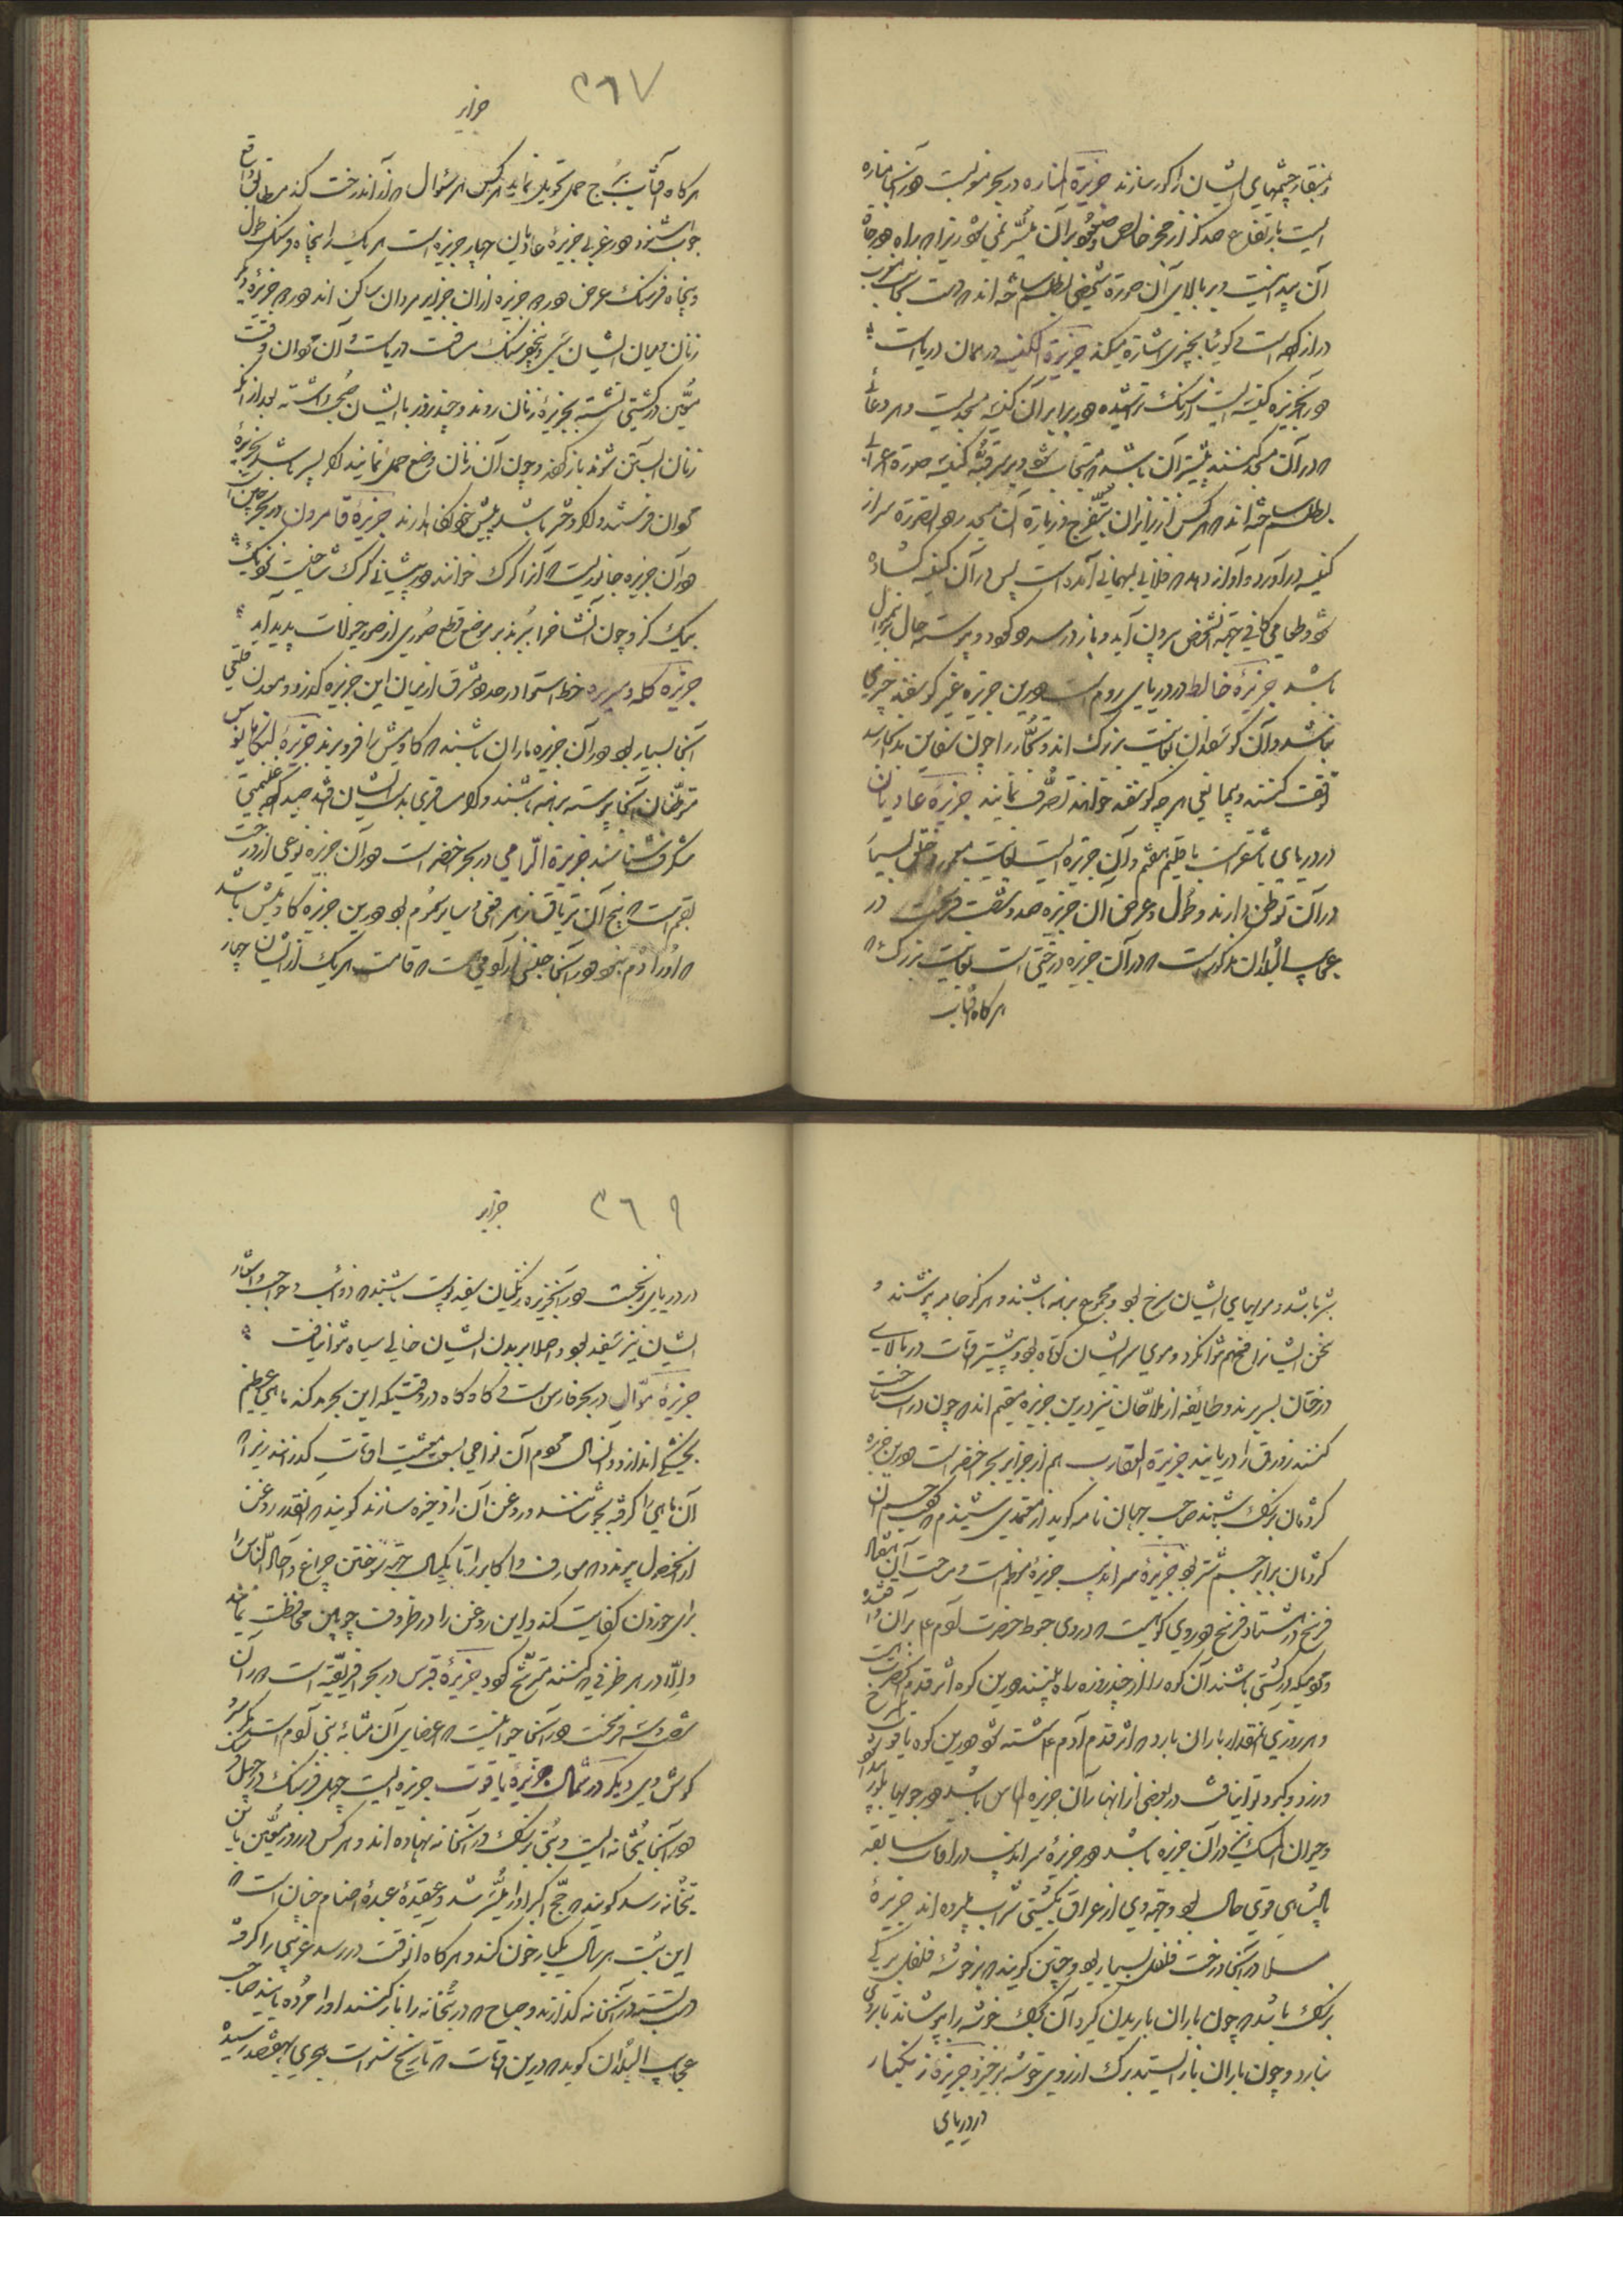 و بمنقار چشمهای ایشان را کور سازند جزیرة المناره در بحر مغربست در آنجا مناره
ایست بارتفاع صد گز از حجر خاص و صعود بر آن میسر نمی شود زیرا که راه درجات
آن پیدا نیست و بر بالای آن صورة شخصی بطلسم ساخته اند که دست بجانب مغرب
دراز کرده است گوئیا بچیزی اشارة میکند جزیرة الکنیسه در همان دریاست
در آنجزیره کنیسه ایست از سنگ تراشیده در برابر آن کنیسه مسجدیست و هر دعائی
که در آن مسجد کنند بیشتر آن باشد که مستجاب شود و بر سر قبه کنیسه صورة غرابی
بطلسم ساخته اند که هر کس از زایران بتفرج و زیارة آن مسجد رود آن صورة سر از
کنیسه درآورد و آواز دهد که فلانی بمهمانی آمده است پس در آن کنیسه گشاده
شود و طعامی کافی جهة آنشخص بیرون آید و باز در بسته گردد و پیوسته حال برینمنوال
باشد جزیرة خالط در دریای روم است درین جزیره غیر گوسفند چیزی
نباشد و آن گوسفندان بغایت بزرگ اند و تجار را چون سفاین بدانجا رسد
توقف کنند و بیمانعی هر چه گوسفند خواهند تصرف نمایند جزیرة عادیان
در دریای باشقرانست باقلیم هفتم و آن جزیره ایست بغایت معمور و خلق بسیار
در آن توطن دارند و طول و عرض آن جزیره صد و شصت فرسخست در
عجایب البلدان مذکورست که در آن جزیره درختی است بغایت بزرگ که
هر گاه آفتاب
٣٦٧
جزایر
هر گاه آفتاب ببرج حمل تحویل نماید هر کس هر سؤال که از آن درخت کند مطابق واقع
جواب شنود و در غربی جزیرة عادیان چهار جزیره است هر یک را پنجاه فرسنگ طول
و پنجاه فرسنگ عرض در سه جزیره از ان جزایر مردان ساکن اند و در سه جزیرة دیگر
زنان و میان ایشان سی و پنج فرسنگ مسافت دریاست و آن مردان وقت
معین در کشتی نشسته بجزیرة زنان روند و چند روز با ایشان صحبت داشته بعد از آنکه
زنان آبستن شوند باز گردند و چون آن زنان وضع حمل نمایند اگر پسر باشد بجزیرة
مردان فرستند و اگر دختر باشد پیش خود نگاهدارند جزیرة قامرون در بحر چین است
در آن جزیره جانوریست که آنرا کرک خوانند در پیشانی کرک شاخیست نزدیک
بیک گز و چون آن شاخ را ببرند بر موضع قطع صورتی از صور حیوانات پدید آید
جزیرة کله و سریره خط استوا در حد مشرق از میان این جزیره گذرد و معدن قلعی
آنجا بسیار بود در آن جزیره ماران باشند که گاومیش را فرو برند جزیرة لنکابالوس
متوطنان آنجا پیوسته برهنه باشند و اگر مسافری بدست ایشان افتد صید کرده غنیمتی
شگرف شناسند جزیرة الرامی در بحر خضر است در آن جزیره نوعی از درخت
بقم است که بیخ آن تریاق زهر افعی و سایر سموم بود درین جزیره گاومیش باشد
که او را دم نبود و در آنجا جنسی از آدمی است که قامت هر یک از ایشان چهار
شبر باشد و مویهای ایشان سرخ بود و مجموع برهنه باشند و هرگز جامه نپوشند و
سخن ایشانرا فهم نتوان کرد و موی سر ایشان کوتاه بود بیشتر اوقات در بالای
درختان بسر برند و طائفه از ملاحان نیز درین جزیره مقیم اند که چون در آب سباحت
کنند زورق را دریابند جزیرة العقارب هم از جزایر بحر اخضر است درین جزیره
کژدمان بزرگ باشند صاحب جهان نامه گوید از معتمدی شنیدم که جسم آن
کژدمان برابر جسم شتر بود جزیرة سراندیب جزیرة معظم است و مساحت آن هشتاد
فرسخ در هشتاد فرسخ در وی کوهیست که در وی هبوط حضرت آدم ع بر آن واقع شده
و مردمیکه در کشتی باشند آن کوه را از چند روزه راه بینند درین کوه اثر قدم آنحضرت است
و هر روزی آنمقدار باران بارد که اثر قدم آدم ع شسته شود درین کوه یاقوت سرخ
و زرد و کبود توان یافت در بعضی از انهار آن جزیره الماس باشد در جویها بلور
و حیوان المسک نیز در آن جزیره باشد در جزیرة سراندیب در اوقات سابقه
پادشاهی قوی حال بود و جهة وی از عراق بکشتی شراب میبرده اند جزیرة
سلا در آنجا درخت فلفل بسیار بود و چنین گویند که بر خوشه فلفل برگی
بزرگ باشد که چون باران باریدن گیرد آن برگ خوشه را بپوشاند تا بر وی
نبارد و چون باران باز ایستد برگ از روی خوشه برخیزد جزیرة زنگبار
در دریای
٣٦٩
جزایر
در دریای زنجست در آنجزیره زنگیان سفید پوست باشند که ذوائب و حواجب و اشفار
ایشان نیز سفید بود و اصلا بر بدن ایشان خالی سیاه نتوان یافت
جزیرة موال در بحر فارس است گاه گاه در وقتیکه این بحر مد کند ماهی عظیم
بخشکی اندازد و آنسال مردم آن نواحی بسعت معیشت اوقات گذرانند زیرا که
آن ماهی را گرفته بجوشانند و روغن آن را ذخیره سازند گویند که آنقدر روغن
از آن حصول پیوندد که معارف و اکابر را تا یکسال جهة سوختن چراغ و آحاد الناس را
برای خوردن کفایت کند و این روغن را در ظروف چوبین محافظت نمایند
و الا در هر ظرفی که کنند مترشح گردد جزیرة قبرس در بحر افریقیه است دور آن
شصت و سه فرسخست در آنجا حیوانیست که اعضای آن مشابه بنی آدم است مگر
گوش وی دیگر در شمال جزیرة یاقوت جزیره ایست چهل فرسنگ در چهل فرسنگ
در آنجا بتخانه ایست و بتی بزرگ در آنخانه نهاده اند و هر کس در روز معین بآن
بتخانه رسد گویند که حج اکبر او را میسر شد و عقیده عبده اصنام چنان است که
این بت هر سال یکبار خون کند و هر گاه آنوقت در رسد غریبی را گرفته
دست بسته در آنخانه گذارند و صباح که در بتخانه را باز کنند او را مرده یابند صاحب
عجایب البلدان گوید که درین اوقات که تاریخ سنوات هجری بهفتصد رسیده